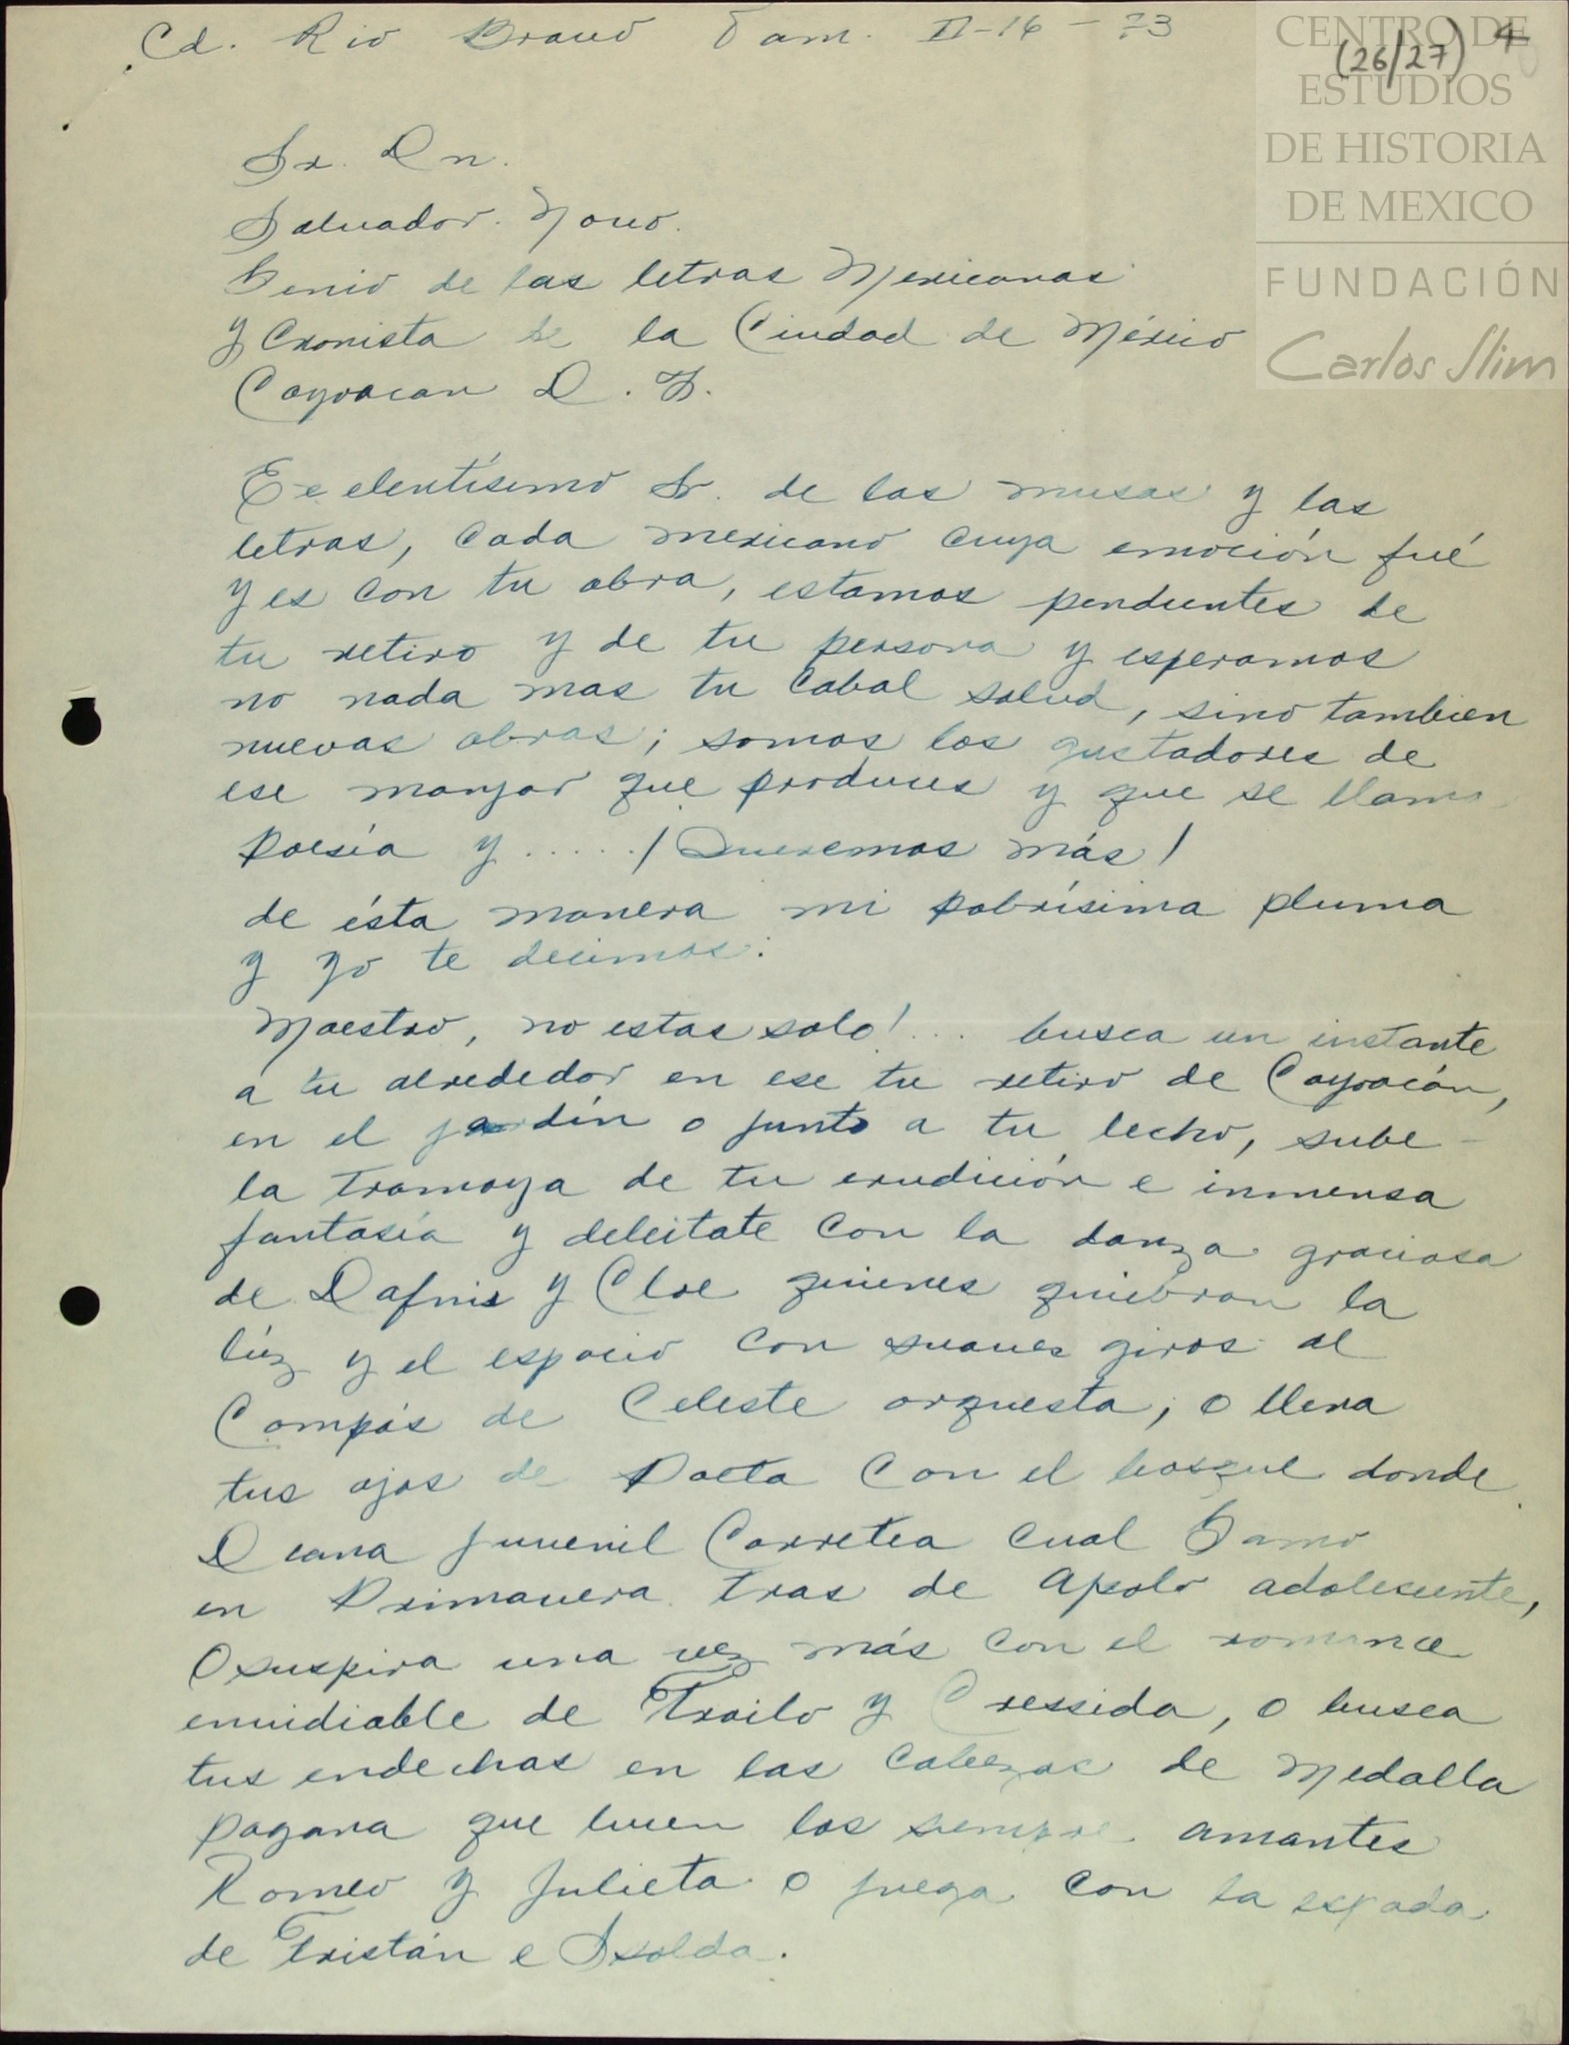 Cd. Rio Bravo Tam. II-16-73
(26/27) 4
CENTRO DE
ESTUDIOS
DE HISTORIA
DE MEXICO
FUNDACIÓN
Carlos Slim
Sr. Dn.
Salvador. Novo.
Genio de las letras Mexicanas
y Cronista de la Ciudad de México
Coyoacan D. F.
Excelentísimo Sr. de las musas y las
letras, cada mexicano cuya emoción fué
y es con tu obra, estamos pendientes de
tu retiro y de tu persona y esperamos
no nada mas tu cabal salud, sino tambien
nuevas obras; somos los gustadores de
ese manjar que produces y que se llama
poesía y ..... ! Queremos más !
de ésta manera mi pobrísima pluma
y yo te decimos:
Maestro, no estas solo! ... busca un instante
a tu alrededor en ese tu retiro de Coyoacán,
en el jardín o junto a tu lecho, sube
la tramoya de tu erudición e inmensa
fantasía y deleitate con la danza graciosa
de Dafnis y Cloe quienes quiebran la
lúz y el espacio con suaves giros al
Compás de Celeste orquesta; o llena
tus ojos de Poeta con el bosque donde
Diana juvenil Corretea cual Gamo
en Primavera tras de Apolo adolescente,
O suspira una vez más con el romance
envidiable de Troilo y Cressida, o busca
tus endechas en las cabezas de Medalla
pagana que lucen los siempre amantes
Romeo y Julieta o juega con la espada
de Tristán e Isolda.